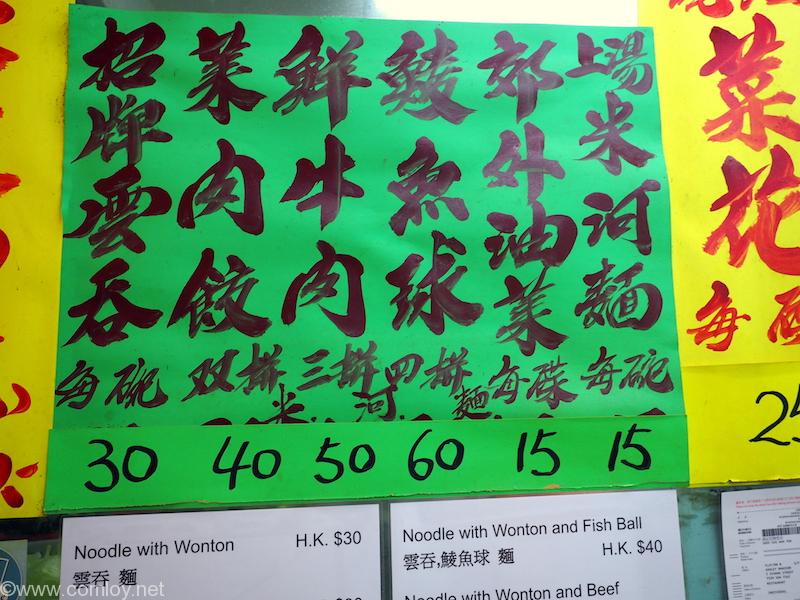 招牌雲吞
菜肉餃
鮮牛肉
鯪魚球
郊外油菜
上湯米河麵
每碗
双拼
三拼
四拼
每碟
每碗
米
河
麵
30
40
50
60
15
15
菜花
每
25
Noodle with Wonton H.K. $30
雲吞 麵
Noodle with Wonton and Fish Ball
雲吞,鯪魚球 麵 H.K. $40
Noodle with Wonton and Beef
©www.comloy.net